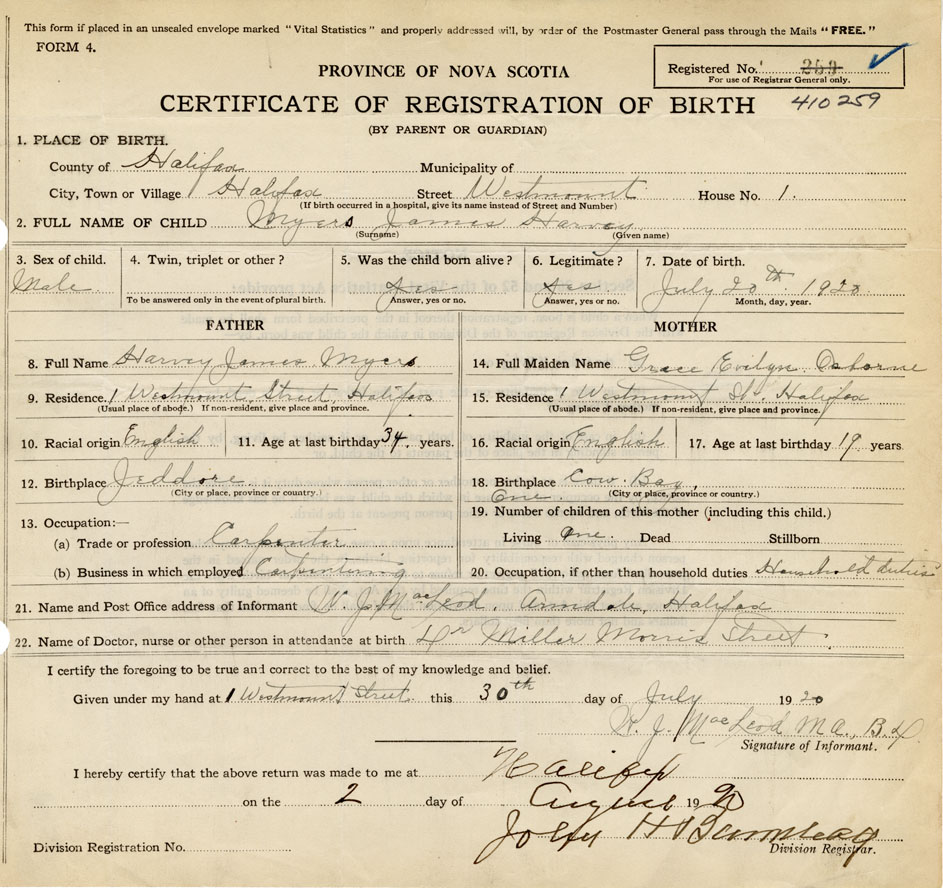 This form if placed in an unsealed envelope marked "Vital Statistics" and properly addressed will, by order of the Postmaster General pass through the Mails "FREE."
FORM 4.
PROVINCE OF NOVA SCOTIA
Registered No. 259
For use of Registrar General only.
CERTIFICATE OF REGISTRATION OF BIRTH 410259
(BY PARENT OR GUARDIAN)
1. PLACE OF BIRTH.
County of Halifax Municipality of
City, Town or Village Halifax Street Westmount House No. 1.
(If birth occurred in a hospital, give its name instead of Street and Number)
2. FULL NAME OF CHILD Myers James Harvey
(Surname) (Given name)
3. Sex of child. 4. Twin, triplet or other? 5. Was the child born alive? 6. Legitimate? 7. Date of birth.
Male Yes Yes July 20th 1920
To be answered only in the event of plural birth. Answer, yes or no. Answer, yes or no. Month, day, year.
FATHER MOTHER
8. Full Name Harvey James Myers 14. Full Maiden Name Grace Evilyn Osborne
9. Residence. 1 Westmount Street, Halifax 15. Residence 1 Westmount St. Halifax
(Usual place of abode.) If non-resident, give place and province. (Usual place of abode.) If non-resident, give place and province.
10. Racial origin English 11. Age at last birthday 34 years. 16. Racial origin English 17. Age at last birthday 19 years
12. Birthplace Jeddore 18. Birthplace Cow Bay,
(City or place, province or country.) One. (City or place, province or country.)
13. Occupation:— 19. Number of children of this mother (including this child.)
(a) Trade or profession Carpenter Living One. Dead Stillborn
(b) Business in which employed Carpentering 20. Occupation, if other than household duties Household duties
21. Name and Post Office address of Informant J. MacLeod, Halifax
22. Name of Doctor, nurse or other person in attendance at birth Dr Miller Morris Street
I certify the foregoing to be true and correct to the best of my knowledge and belief.
Given under my hand at 1 Westmount Street this 30th day of July 1920
J. MacLeod M.A., B.D.
Signature of Informant.
I hereby certify that the above return was made to me at Halifax
on the 2 day of August 1920
John H
Division Registration No. Division Registrar.